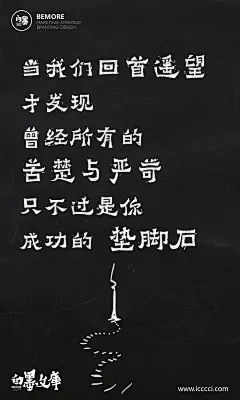 BEMORE
MARKETING STRATEGY
BRANDING DESIGN
当我们回首遥望
才发现
曾经所有的
苦楚与严苛
只不过是你
成功的 垫脚石
白墨文库
www.icccci.com